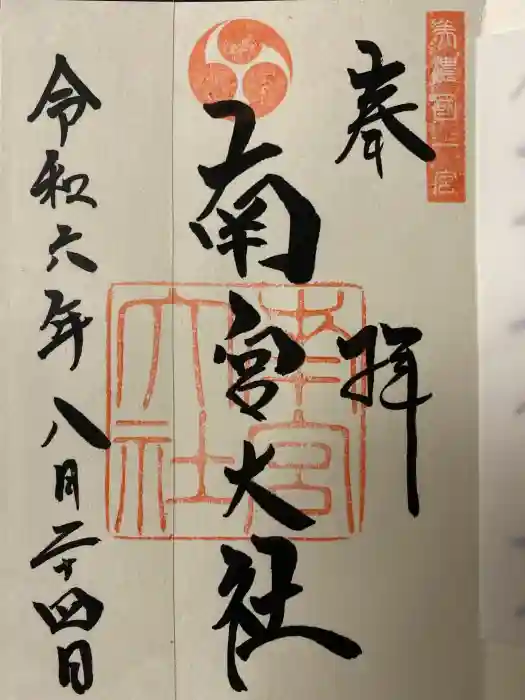 美濃国一宮
奉拝
南宮大社
南宮大社
令和六年八月二十四日